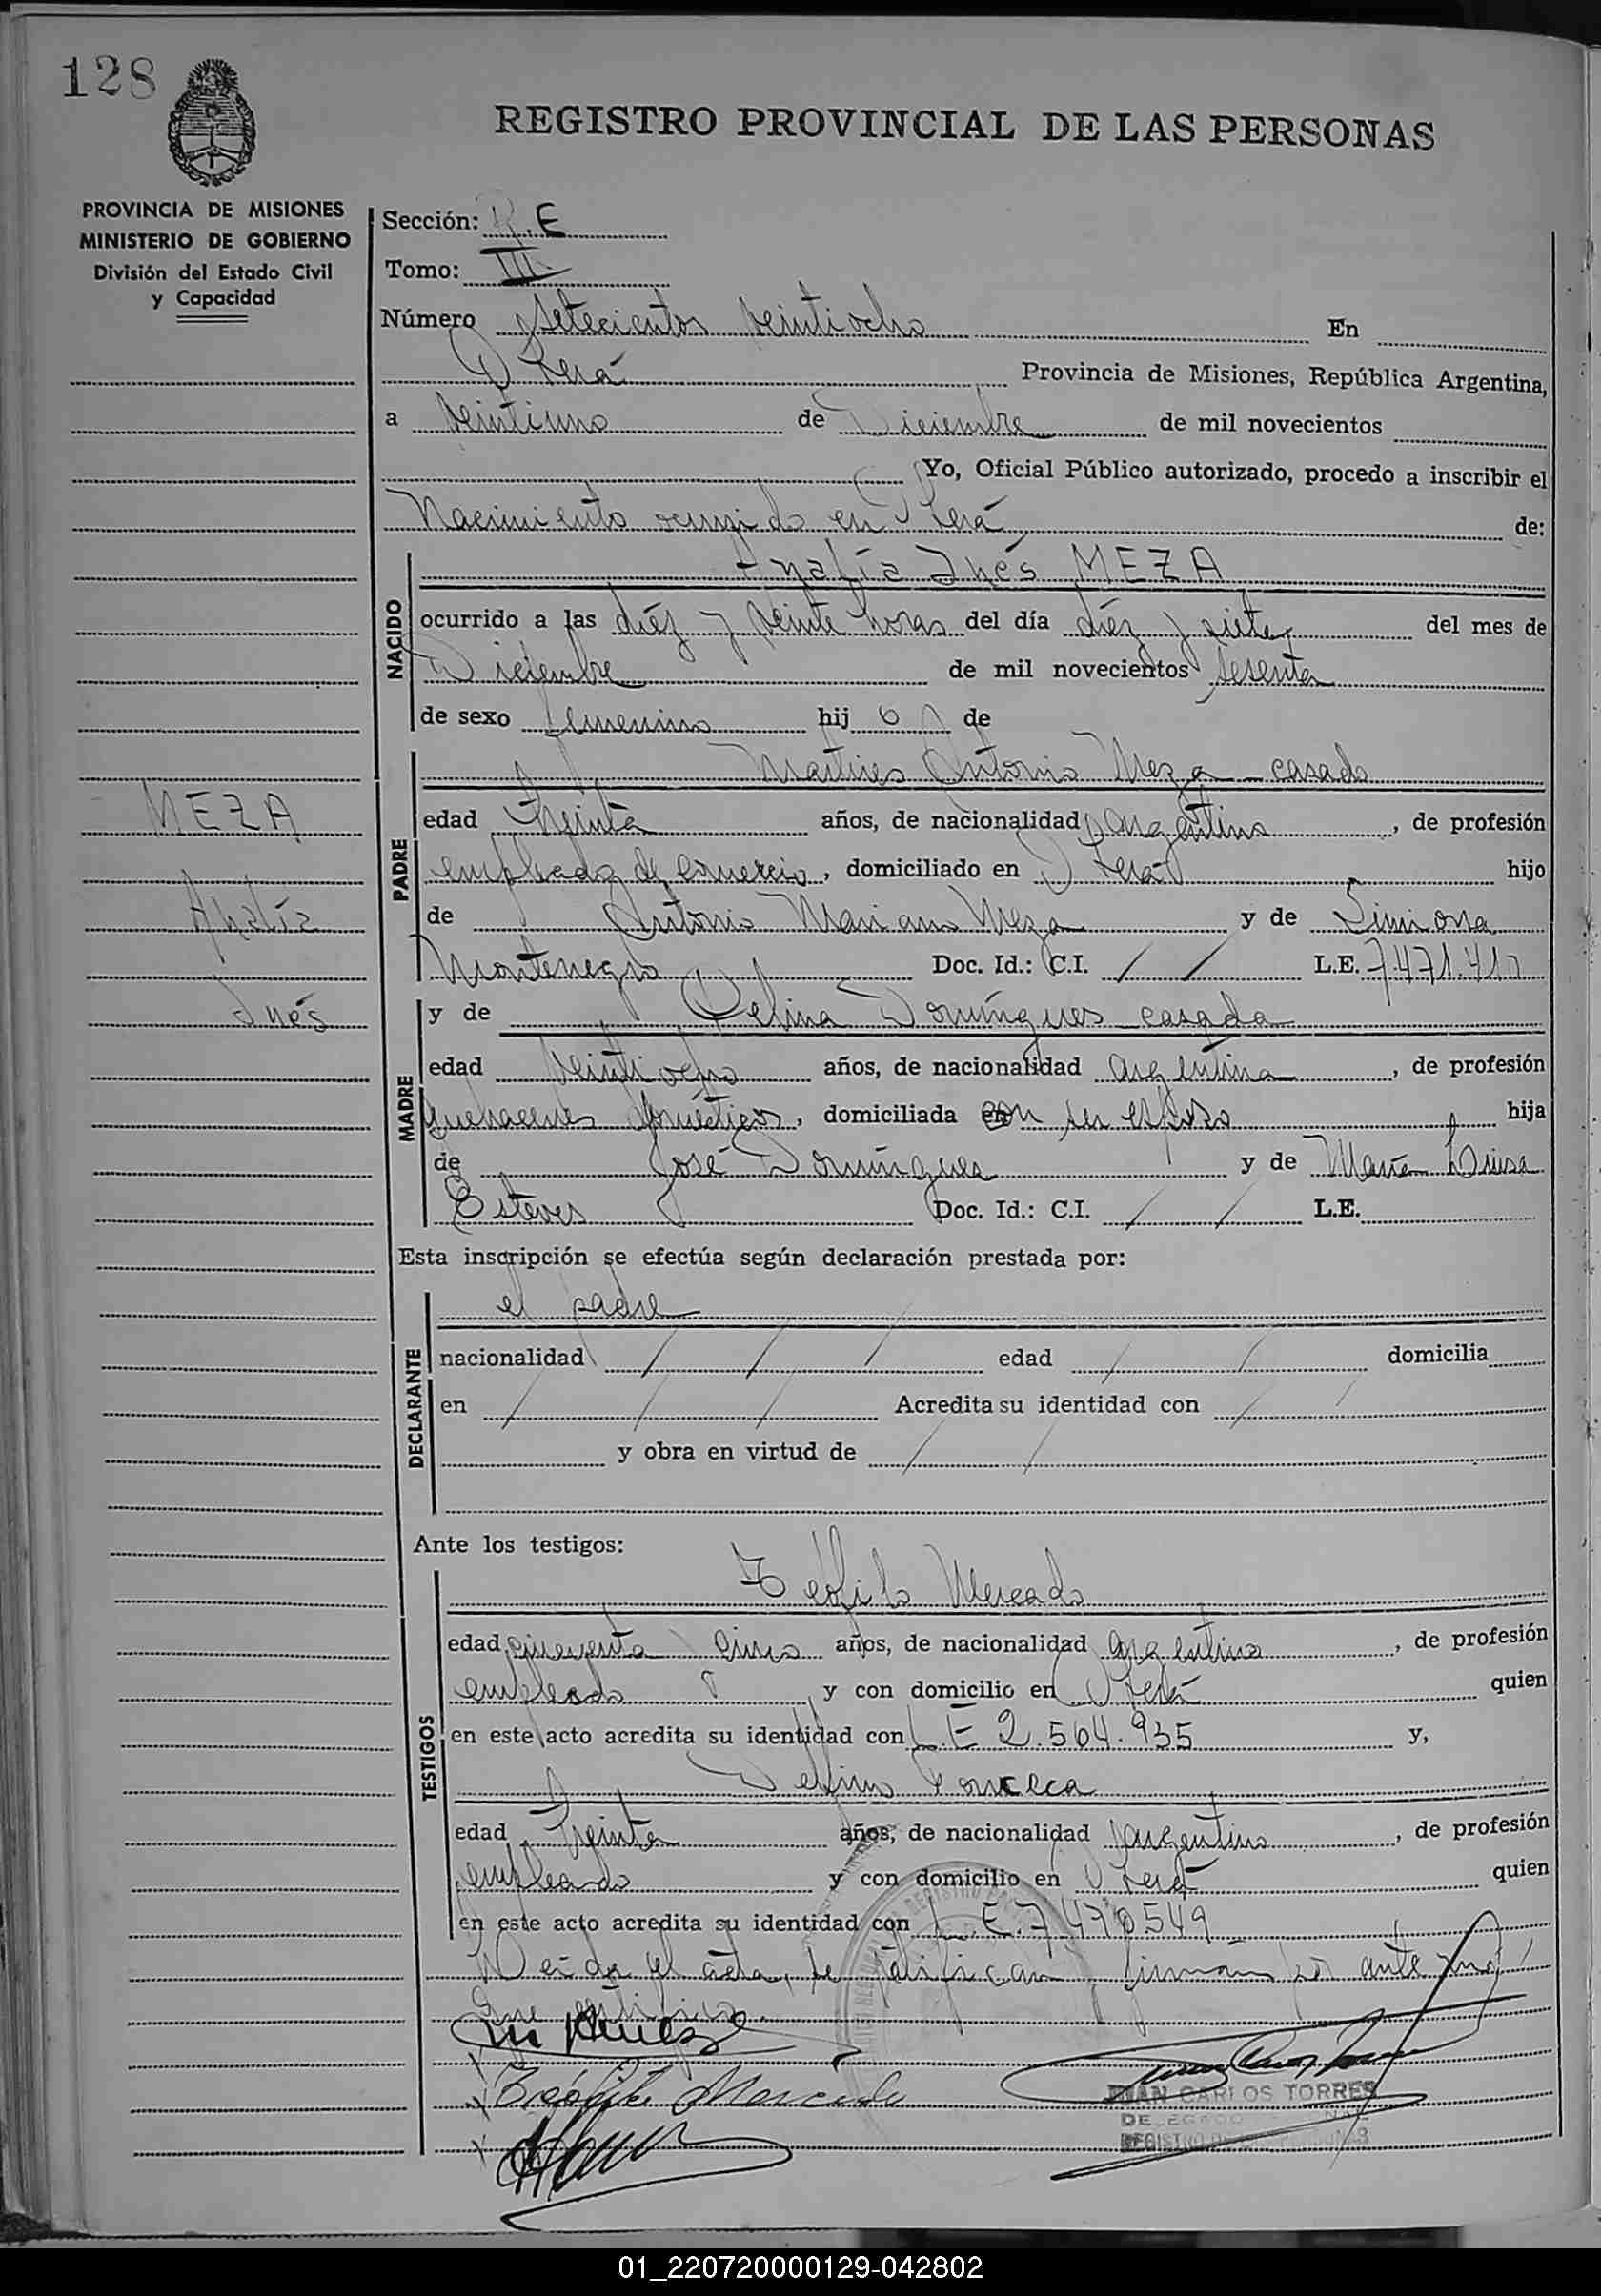 128
REGISTRO PROVINCIAL DE LAS PERSONAS
PROVINCIA DE MISIONES
MINISTERIO DE GOBIERNO
División del Estado Civil
y Capacidad
Sección: R.E
Tomo: III
Número setecientos veintiocho En
Oberá Provincia de Misiones, República Argentina,
a veintiuno de Diciembre de mil novecientos
Yo, Oficial Público autorizado, procedo a inscribir el
Nacimiento ocurrido en Oberá de:
NACIDO
Analía Inés MEZA
ocurrido a las diéz y veinte horas del día diéz y siete del mes de
Diciembre de mil novecientos sesenta
de sexo femenino hij o de
PADRE
Antonio Meza - casado
edad treinta años, de nacionalidad argentina, de profesión
empleado de comercio, domiciliado en Oberá hijo
de Antonio Mariano Meza y de Simiona
Montenegro Doc. Id.: C.I. / / L.E. 7.471.417
MEZA
Analía
Inés
MADRE
y de Delina Domíngues casada
edad veintiocho años, de nacionalidad argentina, de profesión
quehaceres domésticos, domiciliada con su esposo hija
de José Domíngues y de María Luisa
Esteves Doc. Id.: C.I. / / L.E.
Esta inscripción se efectúa según declaración prestada por:
DECLARANTE
el padre
nacionalidad / / / edad / / domicilia
en / / / Acredita su identidad con / /
y obra en virtud de / /
Ante los testigos:
TESTIGOS
Teófilo Mercado
edad cincuenta y cinco años, de nacionalidad argentino, de profesión
empleado y con domicilio en Oberá quien
en este acto acredita su identidad con L.E 2.564.935 y,
Delfino Fonceca
edad treinta años, de nacionalidad argentino, de profesión
empleado y con domicilio en Oberá quien
en este acto acredita su identidad con L.E. 7470549
Leída el acta, la ratifican y firman por ante mí
que certifico.
Teófilo Mercado
JUAN CARLOS TORRES
DELEGADO
REGISTRO DE LAS PERSONAS
01_220720000129-042802